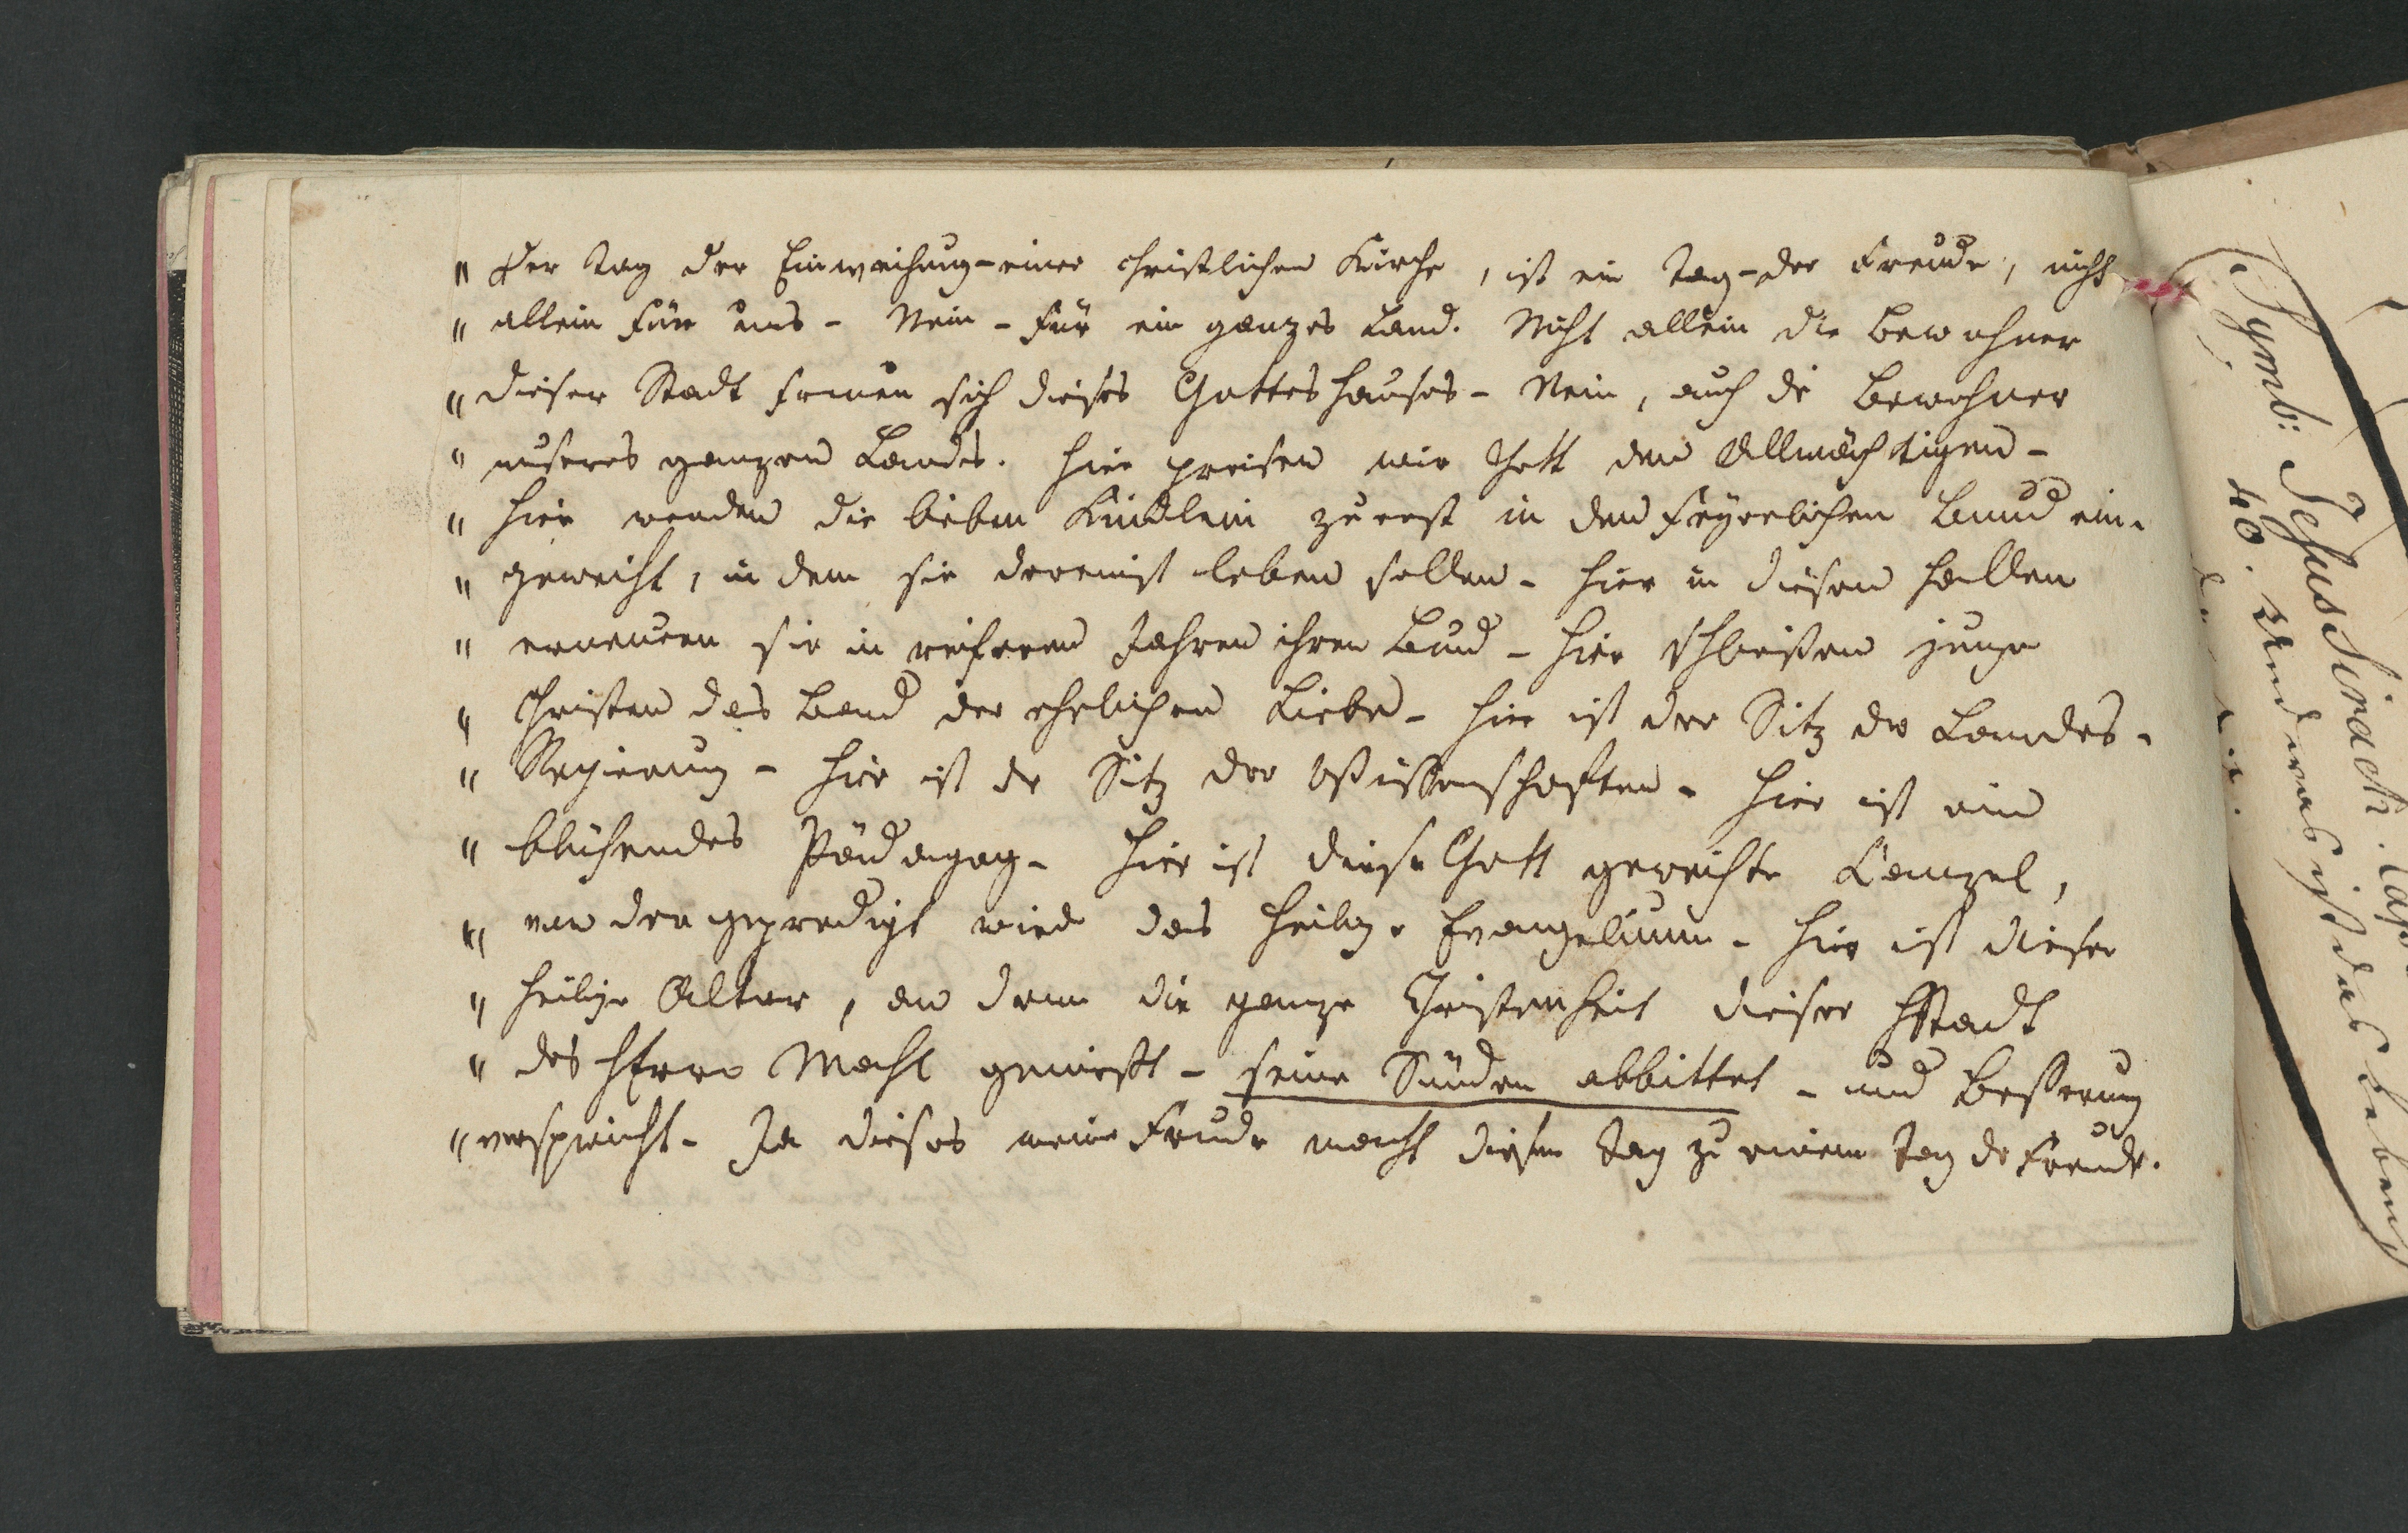 " Der Tag der Einweihung - einer christlichen Kirche, ist ein Tag - der Freude, nicht
" allein für uns - Nein - für ein ganzes Land. Nicht allein die Bewohner
" dieser Stadt freuen sich dieses Gotteshauses - Nein, auch die Bewohner
" unseres ganzen Landes. Hier preisen wir Gott den Allmächtigen -
" hier werden die lieben Kindlein zuerst in den feyerlichen Bund ein-
" geweiht, in dem sie dereinst leben sollen - hier in diesen Hallen
" erneuern sie in reiferen Jahren ihren Bund - hier schließen junge
" Christen das Band der ehelichen Liebe - hier ist der Sitz der Landes-
" Regierung - hier ist der Sitz der Wissenschaften - hier ist ein
" blühendes Pädagog - hier ist diese Gott geweihte Canzel,
" von der gepredigt wird das heilige Evangelium - hier ist dieser
" heilige Altar, an dem die ganze Christenheit dieser Stadt
" des HErrn Mahl genießt - seine Sünden abbittet - und Beßerung
" verspricht - Ja dieses meine Freude macht diesen Tag zu einem Tag der Freude.
Symb: Jesus Sirach. Cap.
40. Und was ist das Leben